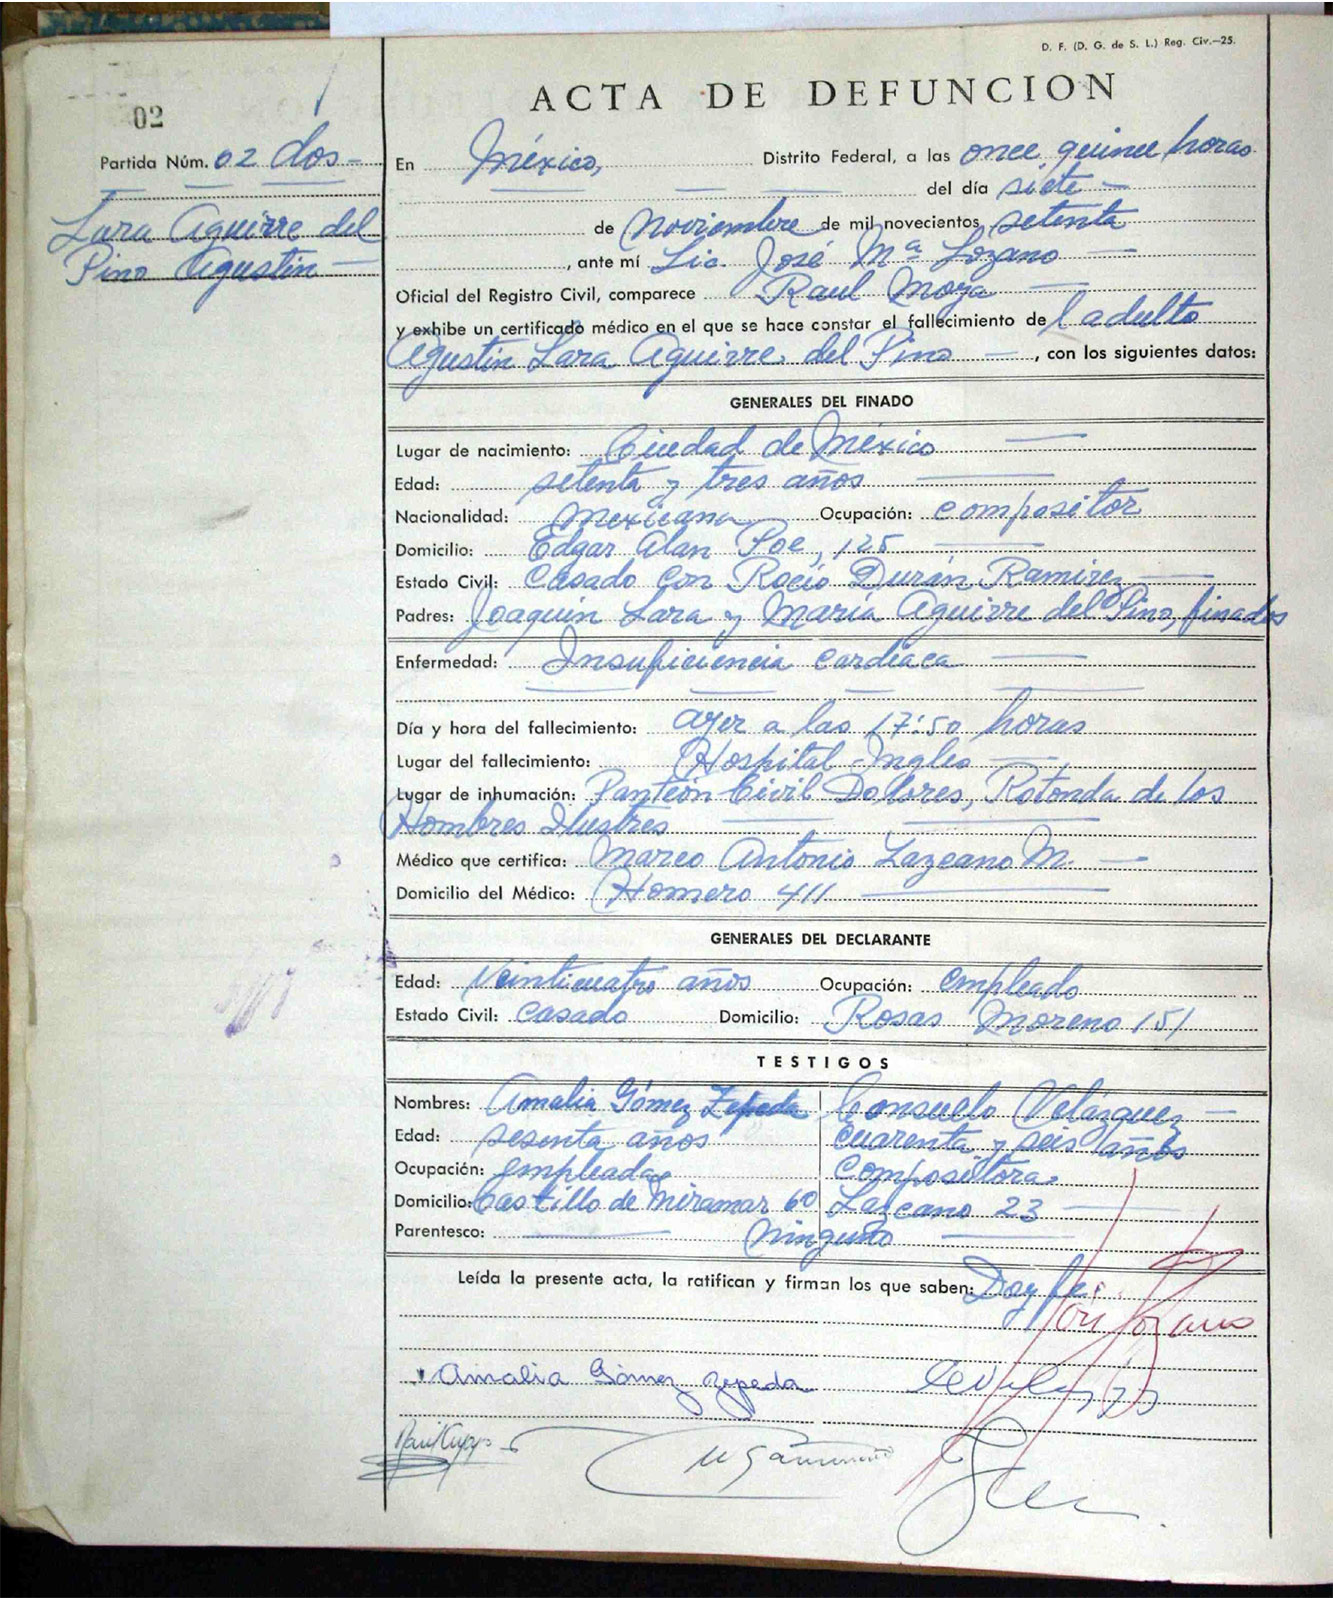 D. F. (D. G. de S. L.) Reg. Civ.—25.
ACTA DE DEFUNCION
02
Partida Núm. 02 dos
Lara Aguirre del
Pino Agustín
En México, Distrito Federal, a las once quince horas
del día siete
de Noviembre de mil novecientos setenta
, ante mí Lic. José Mª Lozano
Oficial del Registro Civil, comparece Raul Moza
y exhibe un certificado médico en el que se hace constar el fallecimiento de l adulto
Agustín Lara Aguirre del Pino, con los siguientes datos:
GENERALES DEL FINADO
Lugar de nacimiento: Ciudad de México
Edad: setenta y tres años
Nacionalidad: Mexicana Ocupación: compositor
Domicilio: Edgar Alan Poe, 125
Estado Civil: Casado con Rocío Durán Ramirez
Padres: Joaquin Lara y María Aguirre del Pino, finados
Enfermedad: Insuficiencia cardiaca
Día y hora del fallecimiento: ayer a las 17:50 horas
Lugar del fallecimiento: Hospital Ingles
Lugar de inhumación: Panteón Civil Dolores, Rotonda de los
Hombres Ilustres
Médico que certifica: Marco Antonio Lazcano M.
Domicilio del Médico: Homero 411
GENERALES DEL DECLARANTE
Edad: Veinticuatro años Ocupación: empleado
Estado Civil: casado Domicilio: Rosas Moreno 151
TESTIGOS
Nombres: Amalia Gómez Zepeda Consuelo Velázquez
Edad: sesenta años cuarenta y seis años
Ocupación: empleada compositora
Domicilio: Castillo de Miramar 60 Lazcano 23
Parentesco: Ninguno
Leída la presente acta, la ratifican y firman los que saben: Doy fe.
Amalia Gómez Zepeda